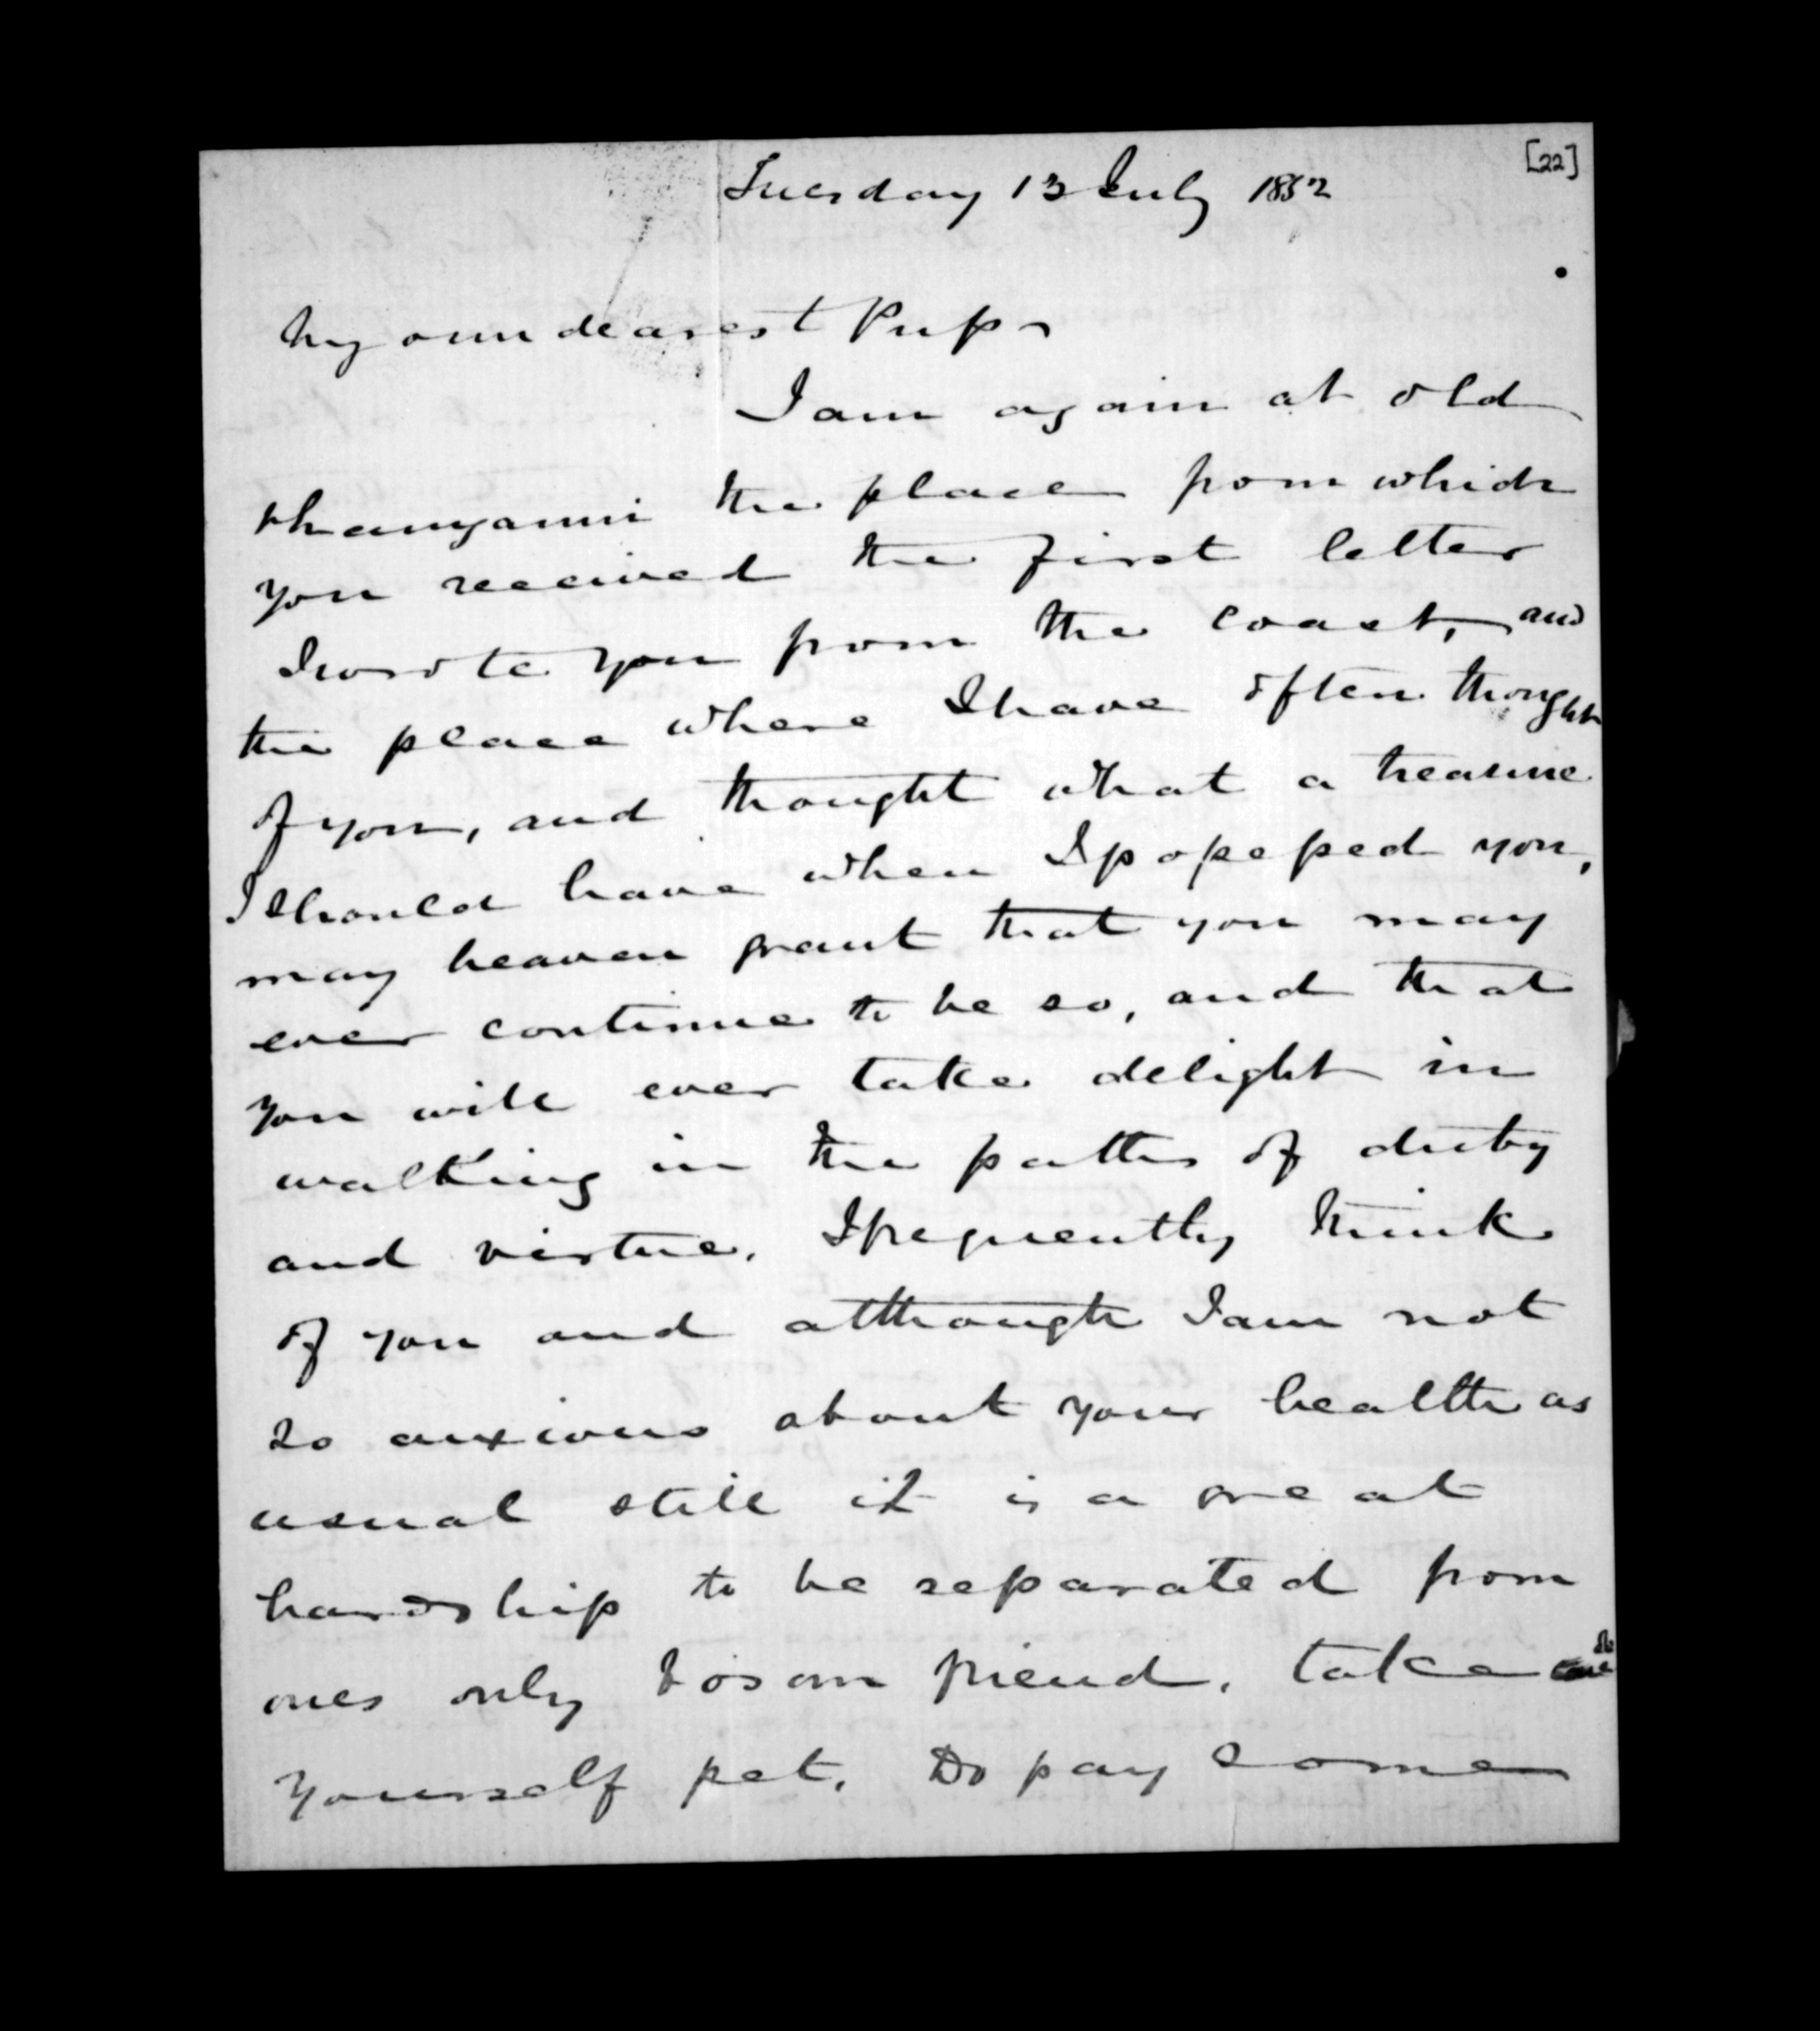 [22]
Tuesday 13 July 1852
My own dearest Pups
I am again at old
Whanganui the place from which
you received the first letter
I wrote you from the coast, and
the place where I have often thought
of you, and thought what a treasure
I should have when I possessed you,
may heaven grant that you may
ever continue to be so, and that
you will ever take delight in
walking in the paths of duty
and virtue. I frequently think
of you and although I am not
so anxious about your health as
usual still it is a great
hardship to be separated from
ones only bosom friend. take
yourself pet. Do pay some